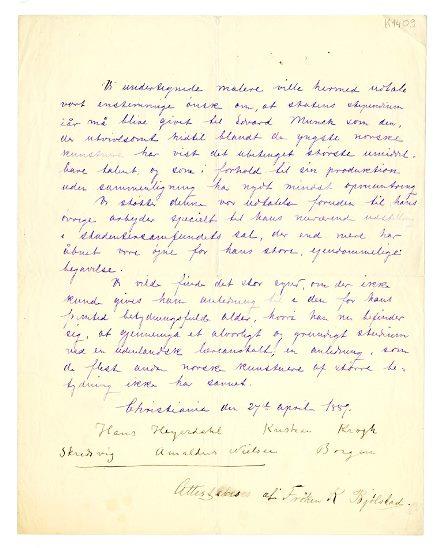 K1409
Vi undertegnede malere ville hermed udtale
vort enstemmige ønske om, at statens stipendium
iår må blive givet til Edvard Munck som den,
der utvivlsomt hidtil blandt de yngste norske
kunstnere har vist det ubetinget største umiddel-
bare talent, og som i forhold til sin produktion
uden sammenligning har nydt mindst opmuntring
Vi støtte denne vor udtalelse foruden til hans
øvrige arbejder specielt til hans nuværende udstilling
i studentersamfundets sal, der end mere har
åbnet vore øjne for hans store, ejendommelige
begavelse.
Vi vilde finde det stor synd, om der ikke
kunde gives ham anledning til i den for hans
fremtid betydningsfulde alder, hvori han nu befinder
sig, at gjennemgå et alvorligt og grundigt studium
ved en udenlandsk læreanstalt, en anledning, som
de fleste andre norske kunstnere af større be-
tydning ikke har savnet.
Christiania den 27de april 1889.
Hans Heyerdahl Kristian Krogh
Skredsvig Amaldus Nielsen Borgen
af Frøken K Bjølstad.